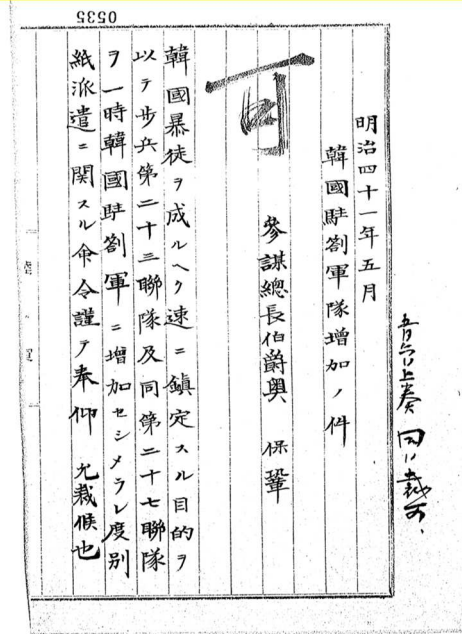 0535
五月六日上奏 同日裁可、
明治四十一年五月
韓國駐劄軍隊増加ノ件
參謀總長伯爵奧 保鞏
可
韓國暴徒ヲ成ルヘク速ニ鎮定スル目的ヲ
以テ歩兵第二十三聯隊及同第二十七聯隊
ヲ一時韓國駐劄軍ニ増加セシメラレ度別
紙派遣ニ関スル命令謹テ奉仰 允裁候也